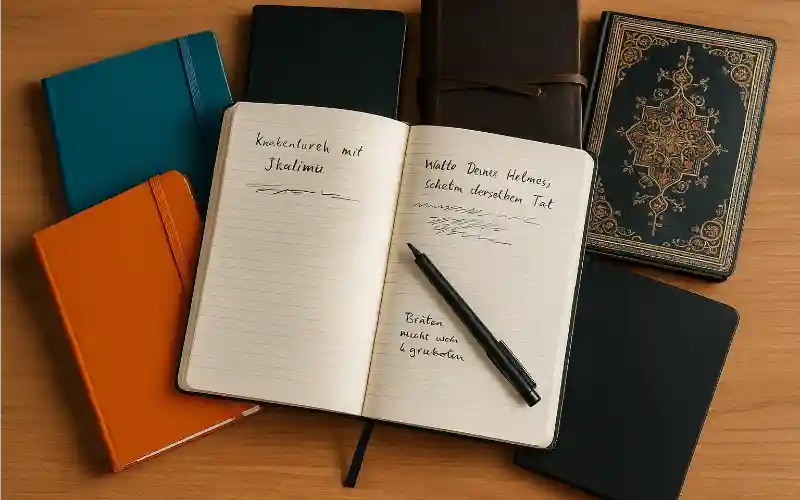 Knabenlureh mit
Jkalimu
Walte Deines Helmes,
schetm derselben Tat
Brüten
mucht wen
&gruboten